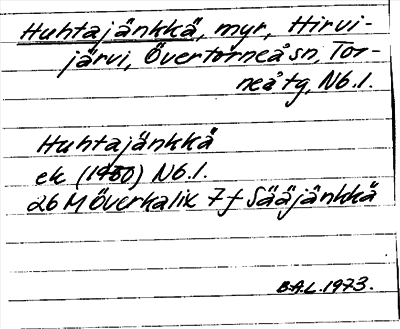 Huhtajänkkä, myr, Hirvi-
järvi, Övertorneå sn, Tor-
neå tg, Nb.l.
Huhtajänkkä
ek (1960) Nb.l.
26 M Överkalix 7 f Sääjänkkä
B.A.L. 1973.